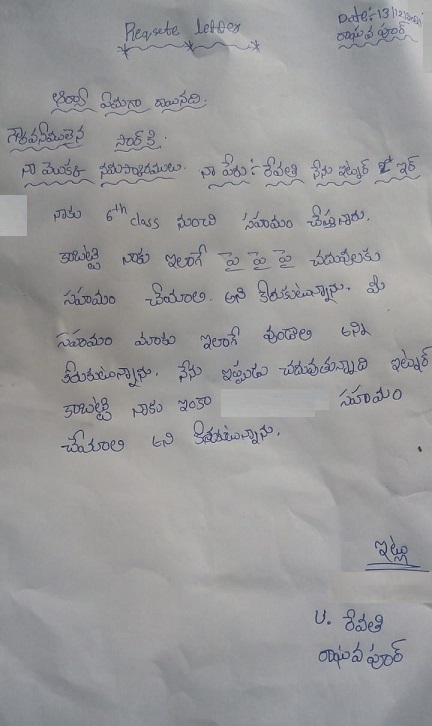 Reqsete letter
Date:- 13/12/2021
రాఘవ పూర్
ఆర్యా విమగా రాయునది.
గౌరవనీములైన సార్ కి.
నా మొుకక నమసాంరములు. నా పేరు:- రేవతి నేను ఇట్నుర్ 2 ఇర్
నాకు 6th class నుంచి సహమం చేస్తున్నారు.
కాబట్టి నాకు ఇలాగే పై పై పై చదువులకు
సహమం చేయాలి అని కోరుకుటున్నాను. మీ
సహమం మాకు ఇలాగే వుండాలి అని
కోరుకుటున్నాను. నేను ఇప్పుడు చదువుతున్నాది ఇట్నుర్
కాబట్టి నాకు ఇంకా సహమం
చేయాలి అని కోరుకుటున్నాను.
ఇట్లు
U. రేవతి
రాఘవ పూర్